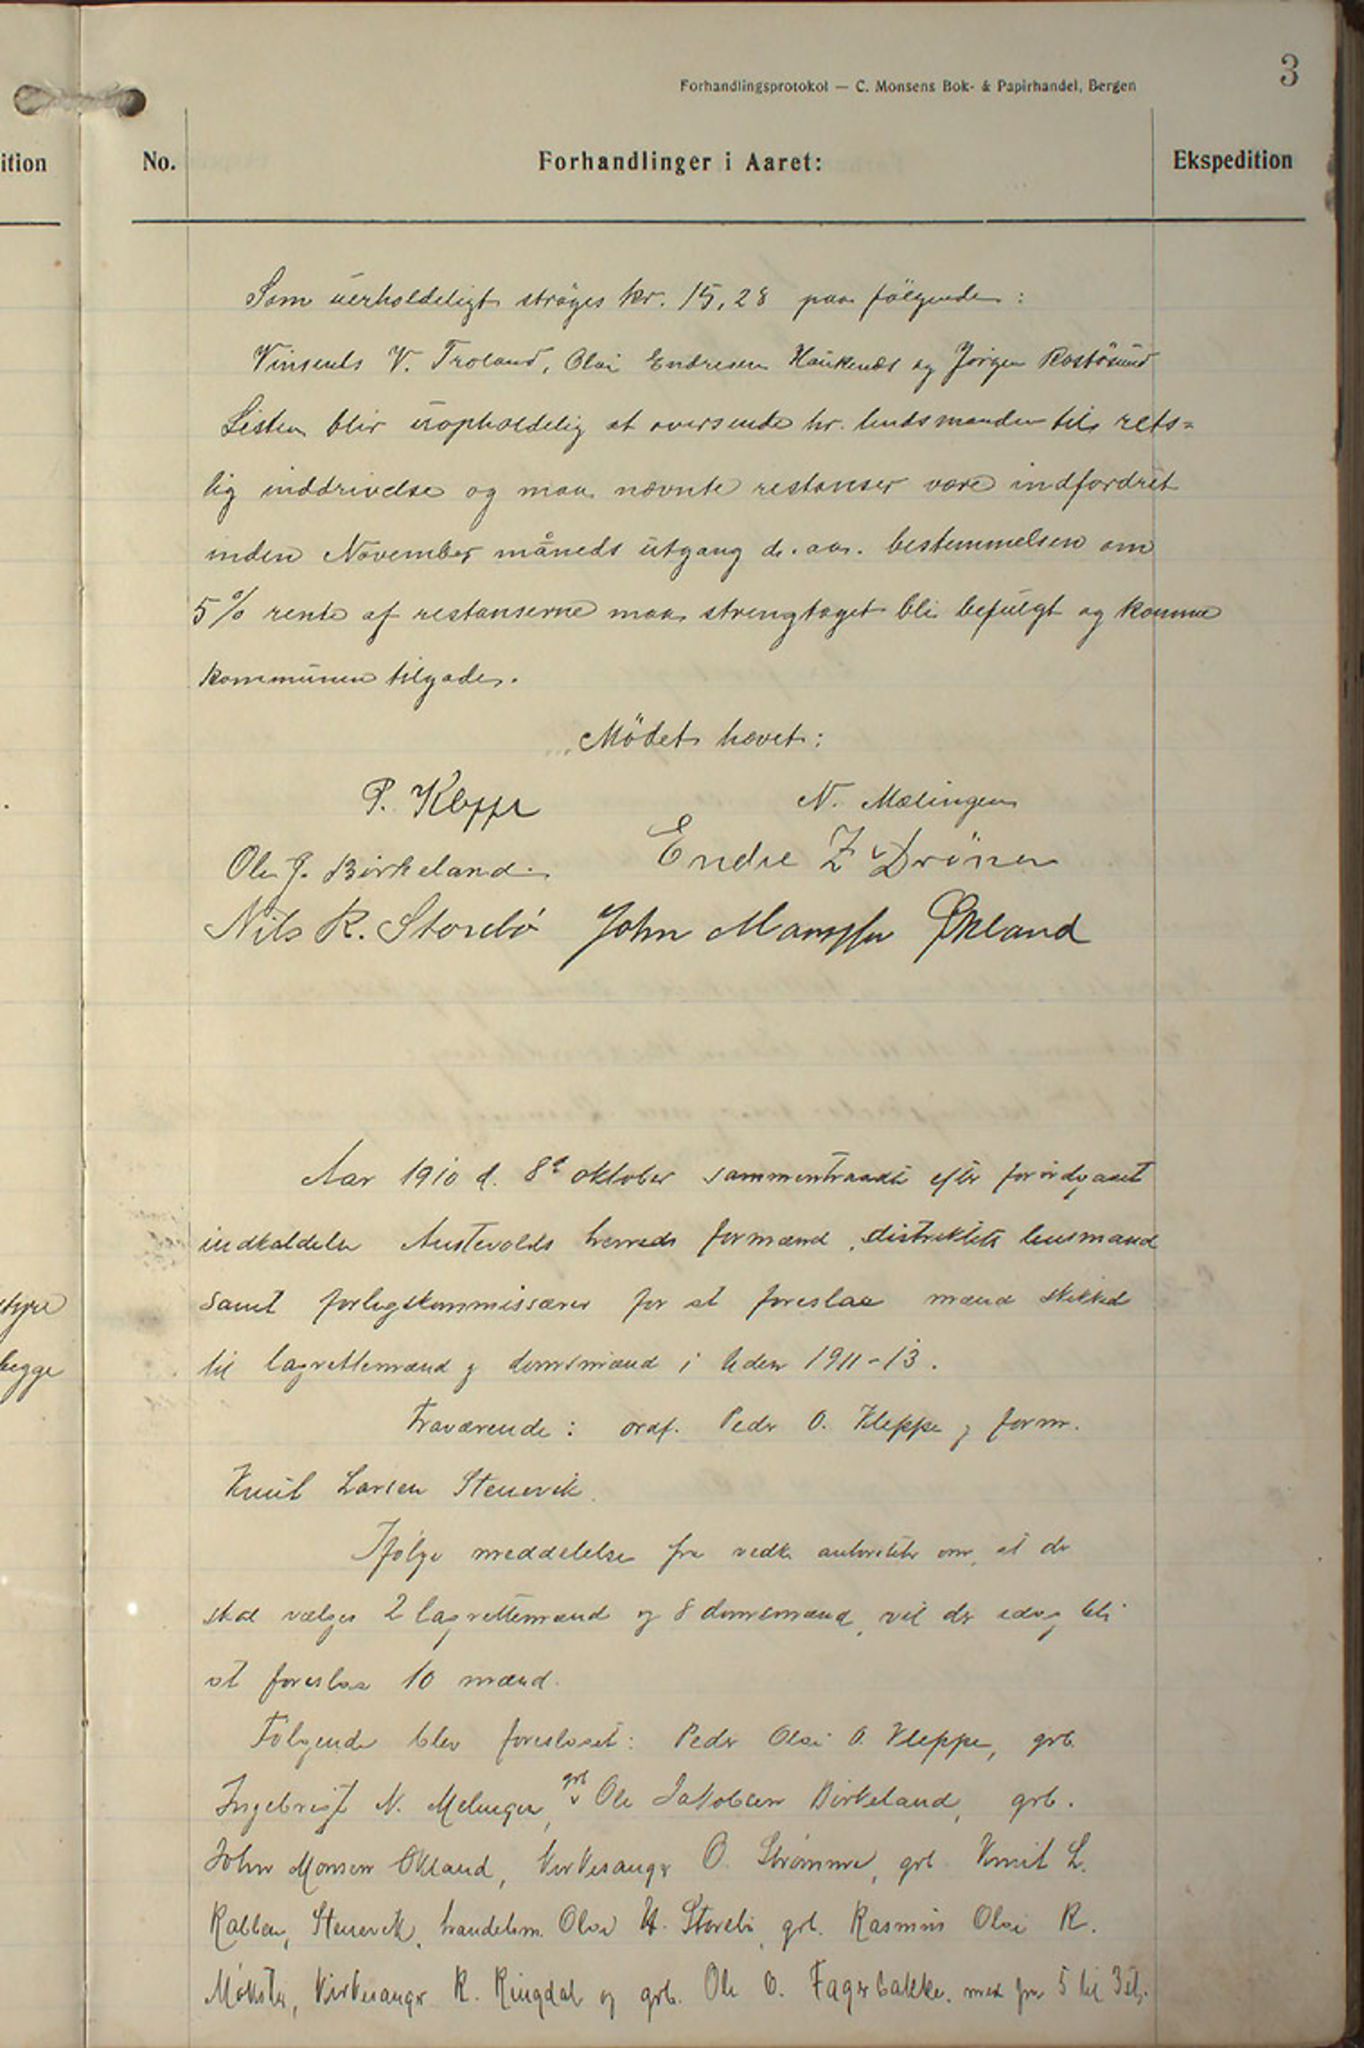 3
Forhandlingsprotokol — C. Monsens Bok- & Papirhandel, Bergen
ition
No.
Forhandlinger i Aaret:
Ekspedition
Som uerholdeligt ströges kr. 15,28 paa fölgende:
Vinsents V. Troland, Olai Endresen Haukenæs og Jörgen Rostösund
Listen blir uopholdelig at oversende hr. lendsmanden til rets=
lig inddrivelse og maa nævnte restanser være indfordret
inden November måneds utgang d. aa. bestemmelsen om
5 % rente af restanserne maa strengtaget bli befulgt og komme
kommunen tilgode.
Mödet hævet:
P. Kleppe
N. Mælingen
Ole J. Birkeland
Endre Z Drönen
Nils R. Storebø John Monssen Økland
Aar 1910 d. 8d oktober sammentraadte efter forudgaaet
indkaldelse Austevolds herreds formænd, distriktets lensmand
samt forligskommissærer for at foreslaa mænd skikked
til lagrettemænd og domsmænd i tiden 1911-13.
styre
begge
Fraværende: ordf. Peder O. Kleppe og form.
Knut Larsen Stenevik.
Ifølge meddelelse fra vedk. autoriteter om, at der
skal vælges 2 lagrettemænd og 8 domsmænd, vil der idag bli
at foreslaa 10 mænd.
Følgende blev foreslaaet: Peder Olai O. Kleppe, grb.
Ingebrigt N. Melingen, grb Ole Jakobsen Birkeland, grb.
John Monsen Økland, kirkesanger O. Strømme, grb. Knut L.
Rabben, Stenevik, handelsm. Olai H. Storebø, grb. Rasmus Olai R.
Møkster, kirkesanger R. Ringdal og grb. Ole O. Fagerbakke. med fra 5 til 3 st.